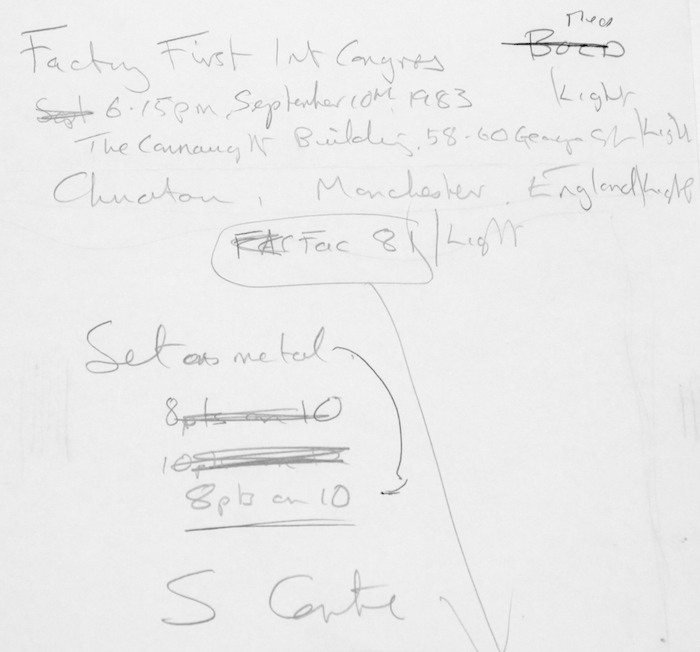 Factory First Int Congress Med BOLD
Sept 6.15pm, September 10th 1983 Light
The Connaught Building, 58-60 George St Light
Manchester, England Light
FAC Fac 81 Light
Set as metal
8pts on 10
10pts on 12
8pts on 10
S Centre